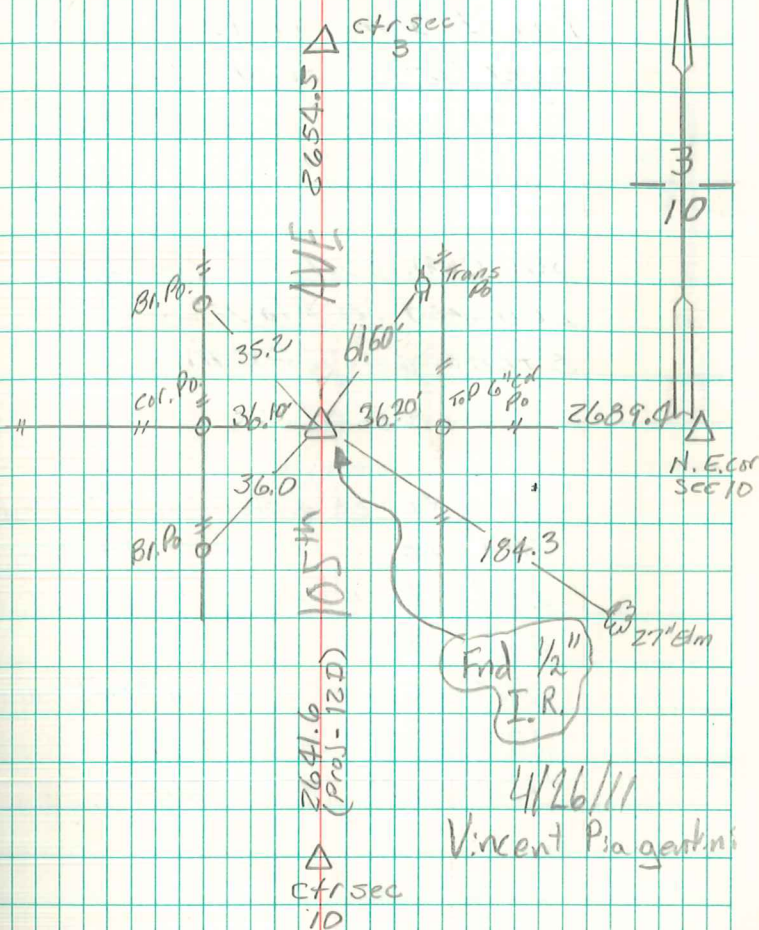 ctr sec
3
2654.5
3
10
AVE
Br. Po.
Trans
Po
35.2
61.60'
Cor. Po.
36.10'
36.20'
Top 6" Cd
Po
2689.4
N. E. cor
Sec 10
36.0
Br. Po
105th
184.3
27" Elm
Fnd 1/2"
I. R.
2641.6
(Proj-12D)
4/26/11
Vincent
ctr sec
10